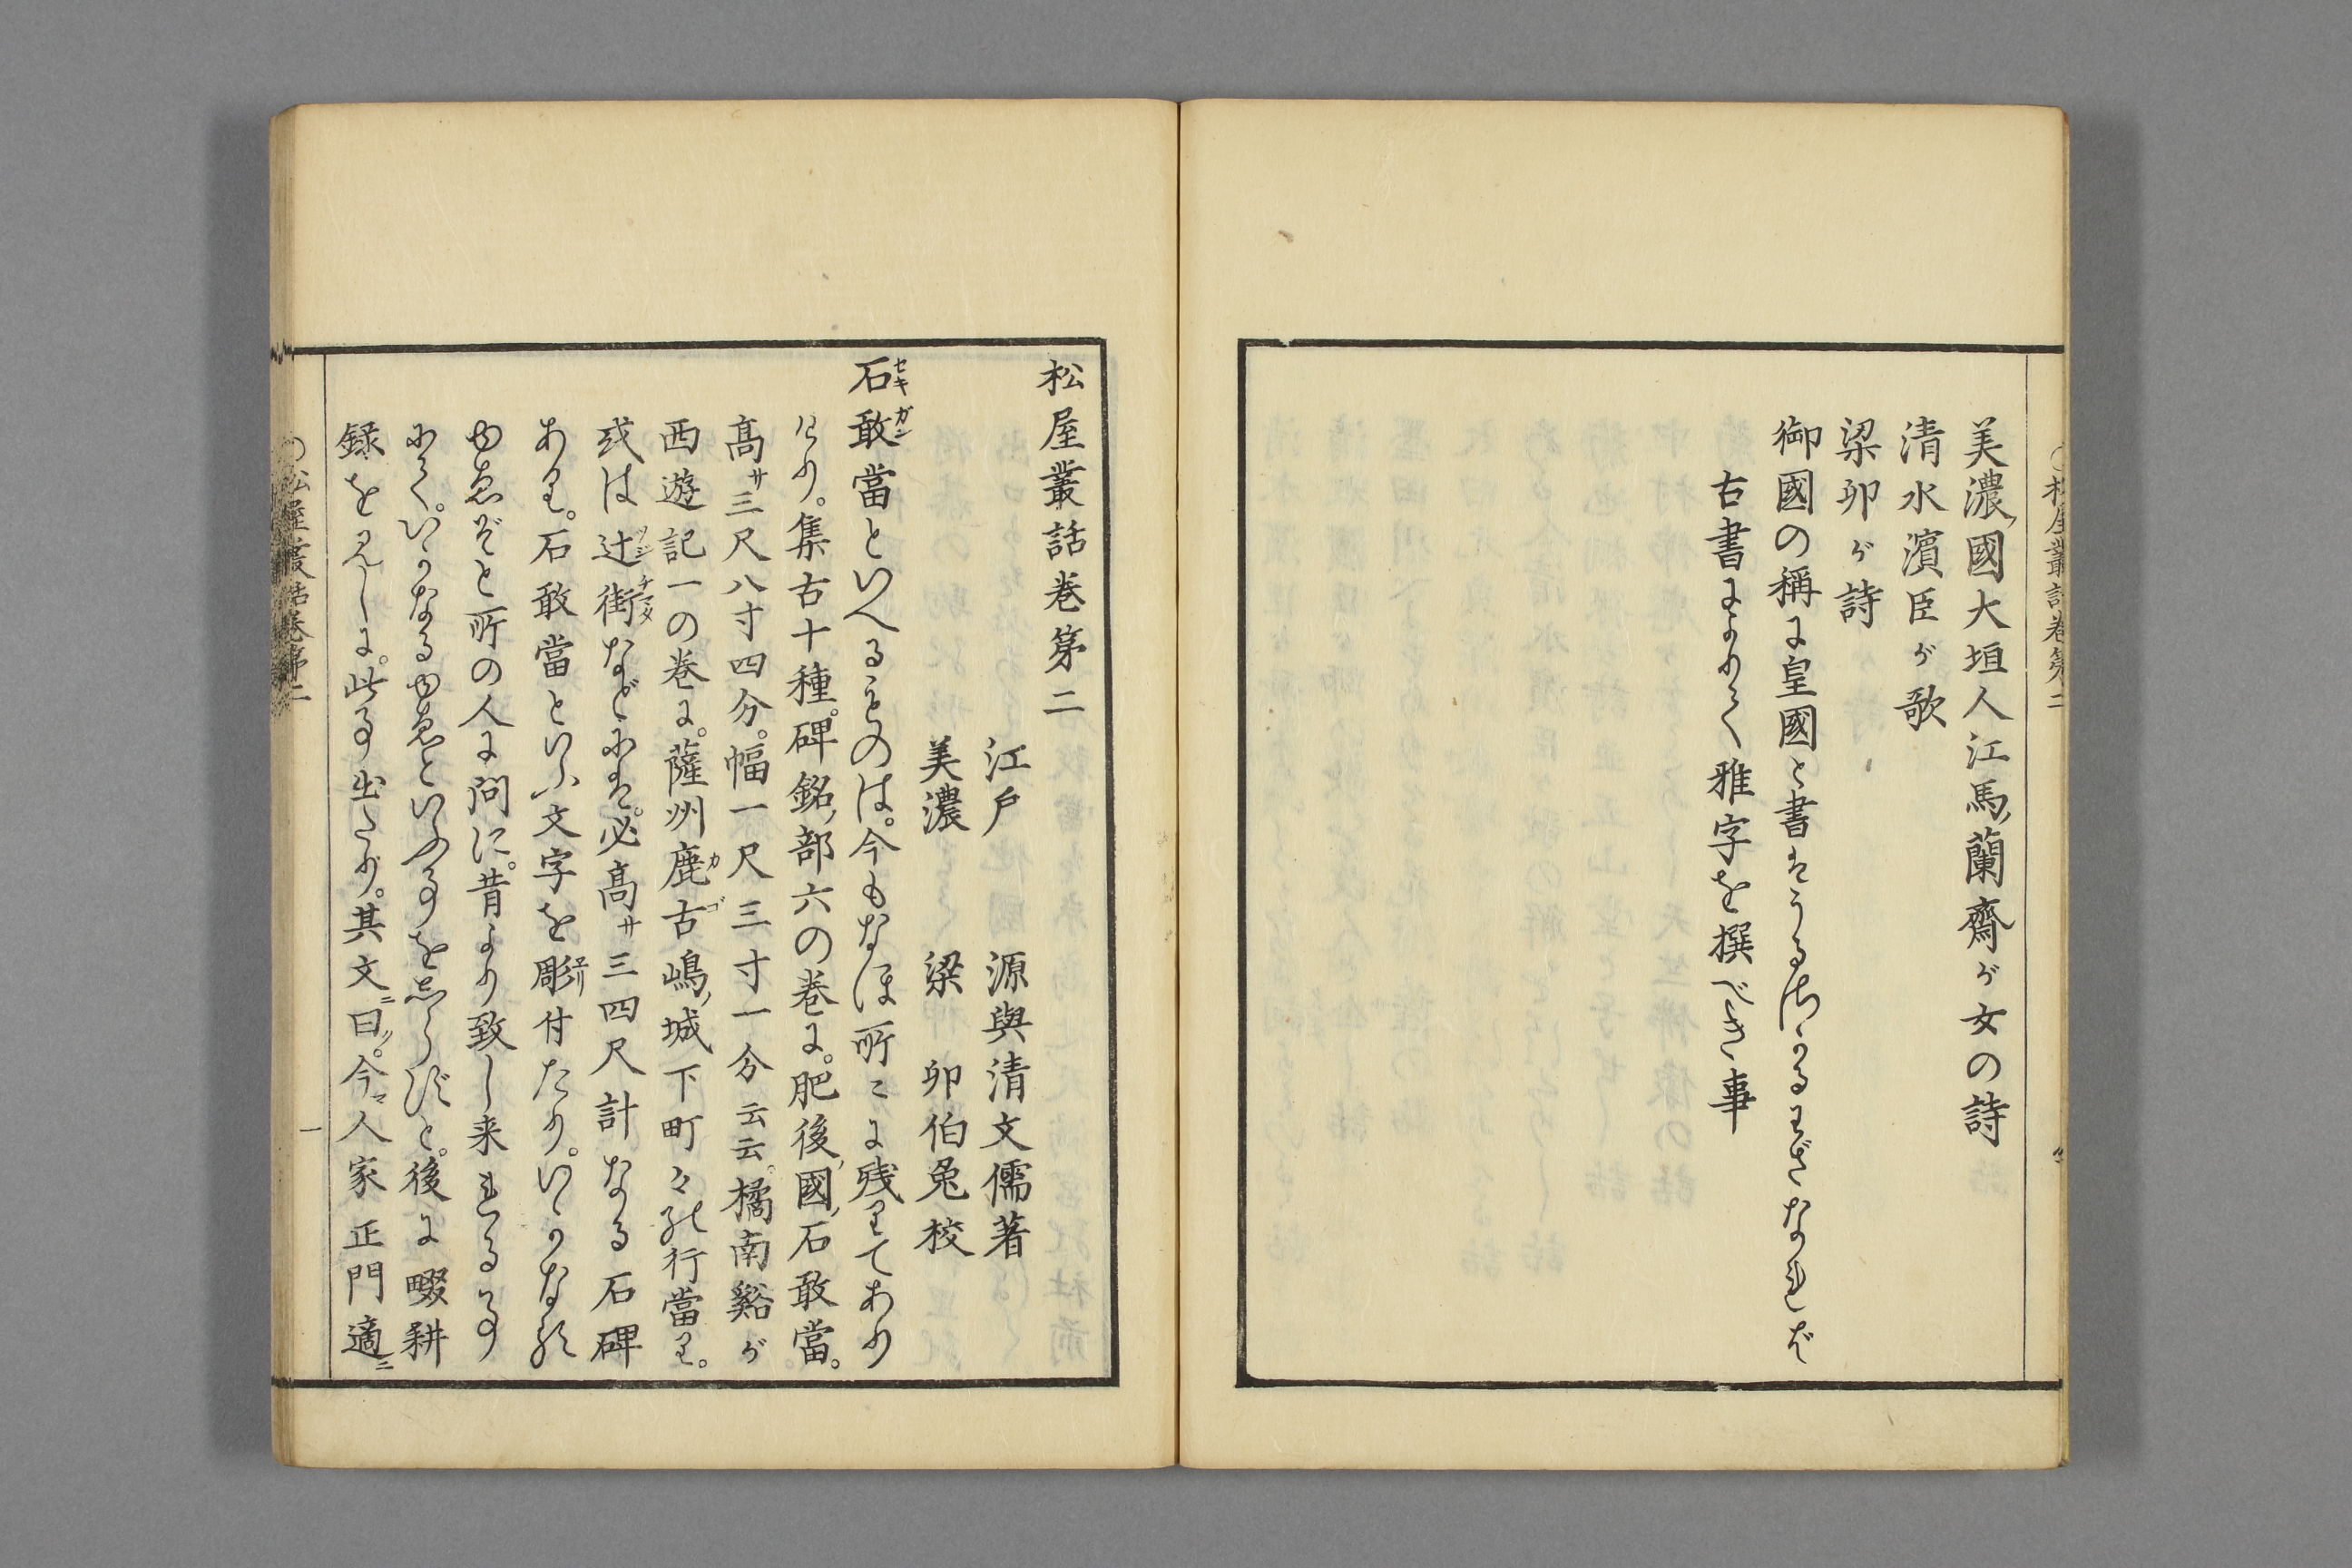 美濃ノ國大垣人江馬ノ蘭齋が女の詩
清水濱臣が歌
梁卯が詩
御國の稱に皇國と書はうるはしかるわざなれど
古書によりて雅字を撰べき事
松屋叢話巻第二
江戸 源與清文儒著
美濃 梁 卯伯兔校
石敢當といへるものは。今もなほ所々に残りてあり
けり。集古十種。碑銘ノ部六の巻に。肥後ノ國ノ石敢當。
高サ三尺八寸四分。幅一尺三寸一分云云。橘南谿が
西遊記一の巻に。薩州鹿古嶋ノ城下町々の行當り。
或は辻街などには。必高サ三四尺計なる石碑
あり。石敢當といふ文字を彫付たり。いかなる
ゆゑぞと所の人に問に。昔より致し来れる事
にて。いかなるゆゑといふ事をしらずと。後に畷耕
録を見しに。此事出たり。其文ニ曰ク。今マ人家正門適ニ
松屋叢話巻第二
一